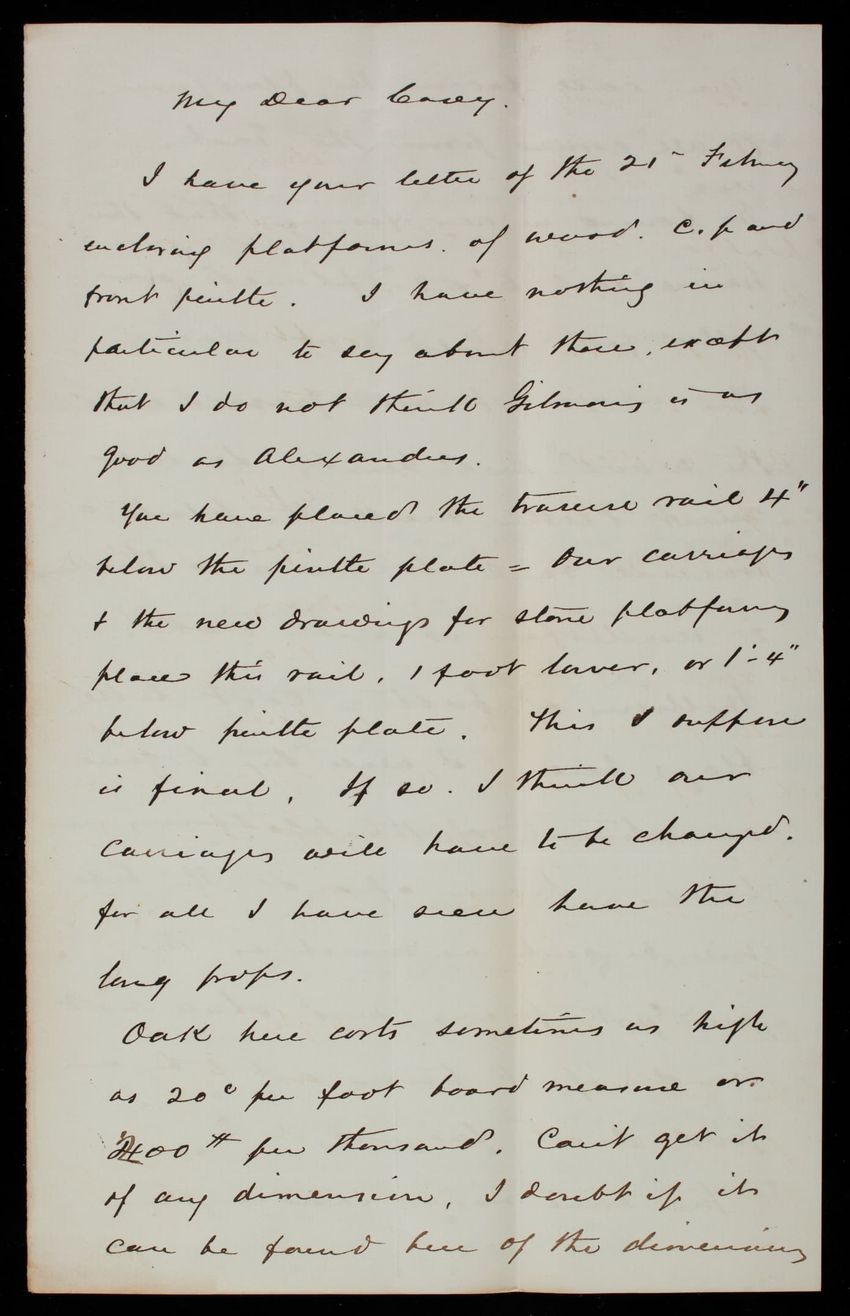 My Dear Casey.
I have your letter of the 21st Febuey
enclosing platforms. of wood. c. p and
front pintle. I have nothing in
particular to say about these, except
that I do not think Gilmores is as
good as Alexanders.
You have placed the traverse rail 4"
below the pintle plate = Our carriages
& the new drawings for stone platforms
place this rail, 1 foot lower, or 1'-4"
below pintle plate. This I suppose
is final, If so. I think our
carriages will have to be changed.
for all I have seen have the
long props.
Oak here costs sometimes as high
as 20c per foot board measure or
200 per thousand. Can't get it
of any dimension, I doubt if it
can be found here of the dimensions